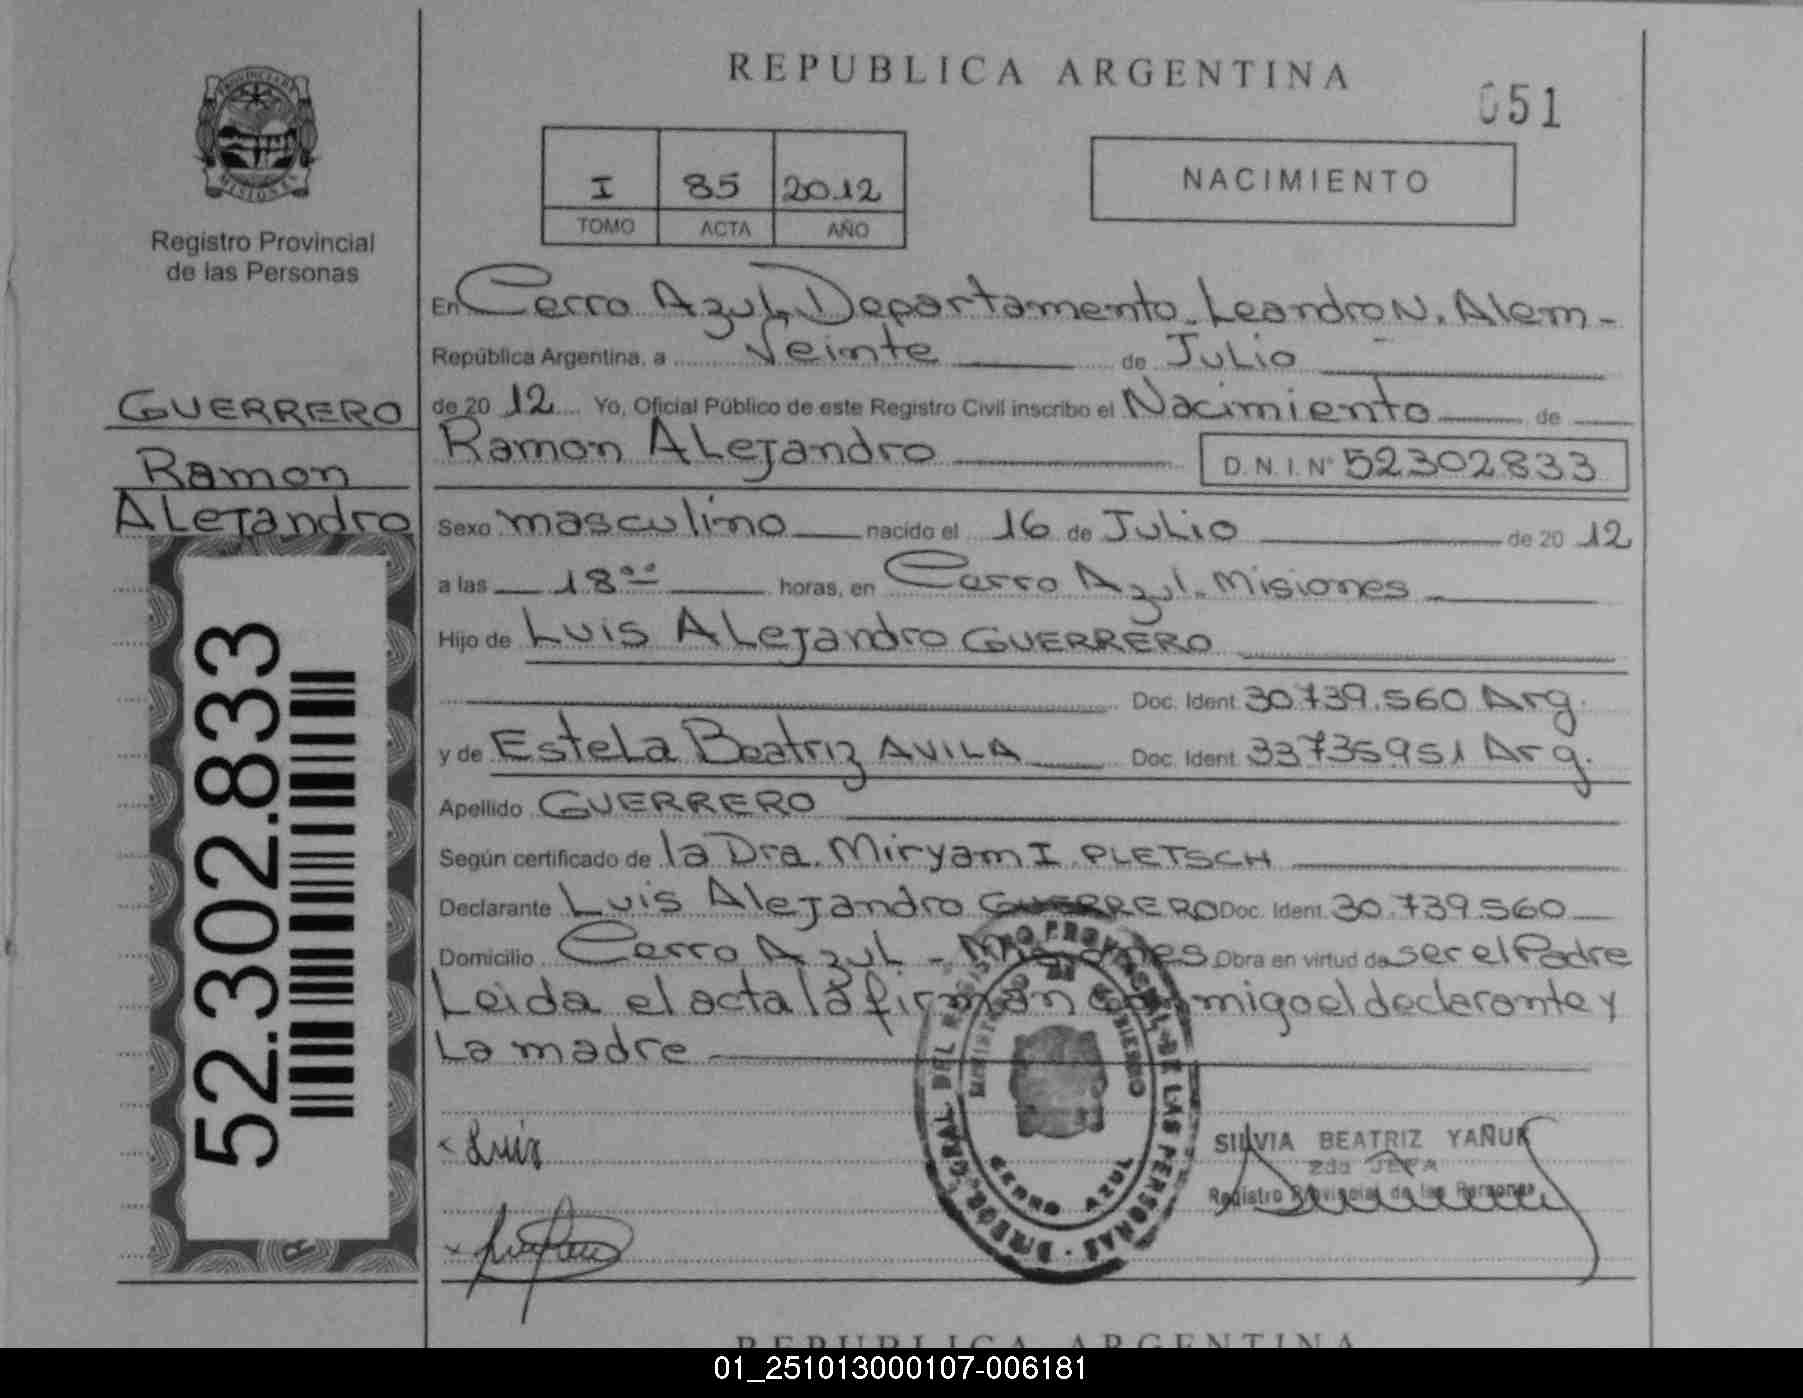 REPUBLICA ARGENTINA
051
PROVINCIA DE
MISIONES
Registro Provincial
de las Personas
I 85 2012
TOMO ACTA AÑO
NACIMIENTO
En Cerro Azul, Departamento Leandro N. Alem -
República Argentina, a Veinte de Julio
de 20 12 Yo, Oficial Público de este Registro Civil inscribo el Nacimiento de
Ramon Alejandro D.N.I. Nº 52302833
GUERRERO
Ramon
Alejandro
52.302.833
Sexo masculino nacido el 16 de Julio de 20 12
a las 18 ºº horas, en Cerro Azul - Misiones
Hijo de Luis Alejandro GUERRERO
Doc. Ident. 30.739.560 Arg.
y de Estela Beatriz AVILA Doc. Ident. 33735951 Arg.
Apellido GUERRERO
Según certificado de la Dra. Miryam I. PLETSCH
Declarante Luis Alejandro GUERRERO Doc. Ident. 30.739.560
Domicilio Cerro Azul - Misiones Obra en virtud de ser el Padre
Leida el acta la firman conmigo el declarante y
La madre
Luis
SILVIA BEATRIZ YAÑUK
2da JEFA
Registro Provincial de las Personas
CERRO AZUL
REPUBLICA ARGENTINA
01_251013000107-006181